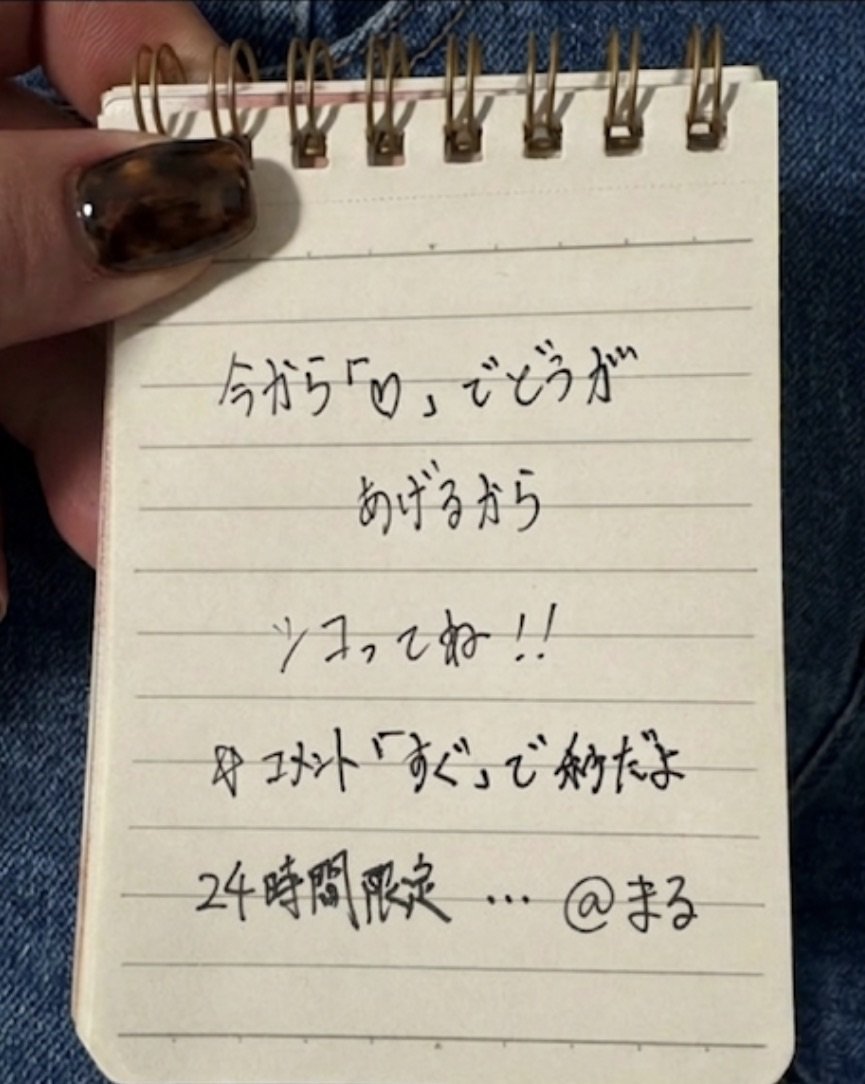 今から「♡」でどうが
あげるから
シコってね!!
☆コメント「すぐ」で秒だよ
24時間限定 … @まる